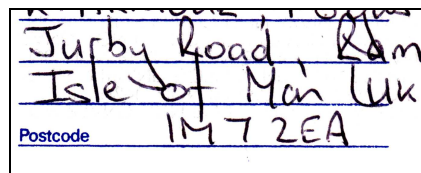 Jurby Road, Ram
Isle of Man (UK
Postcode IM7 2EA